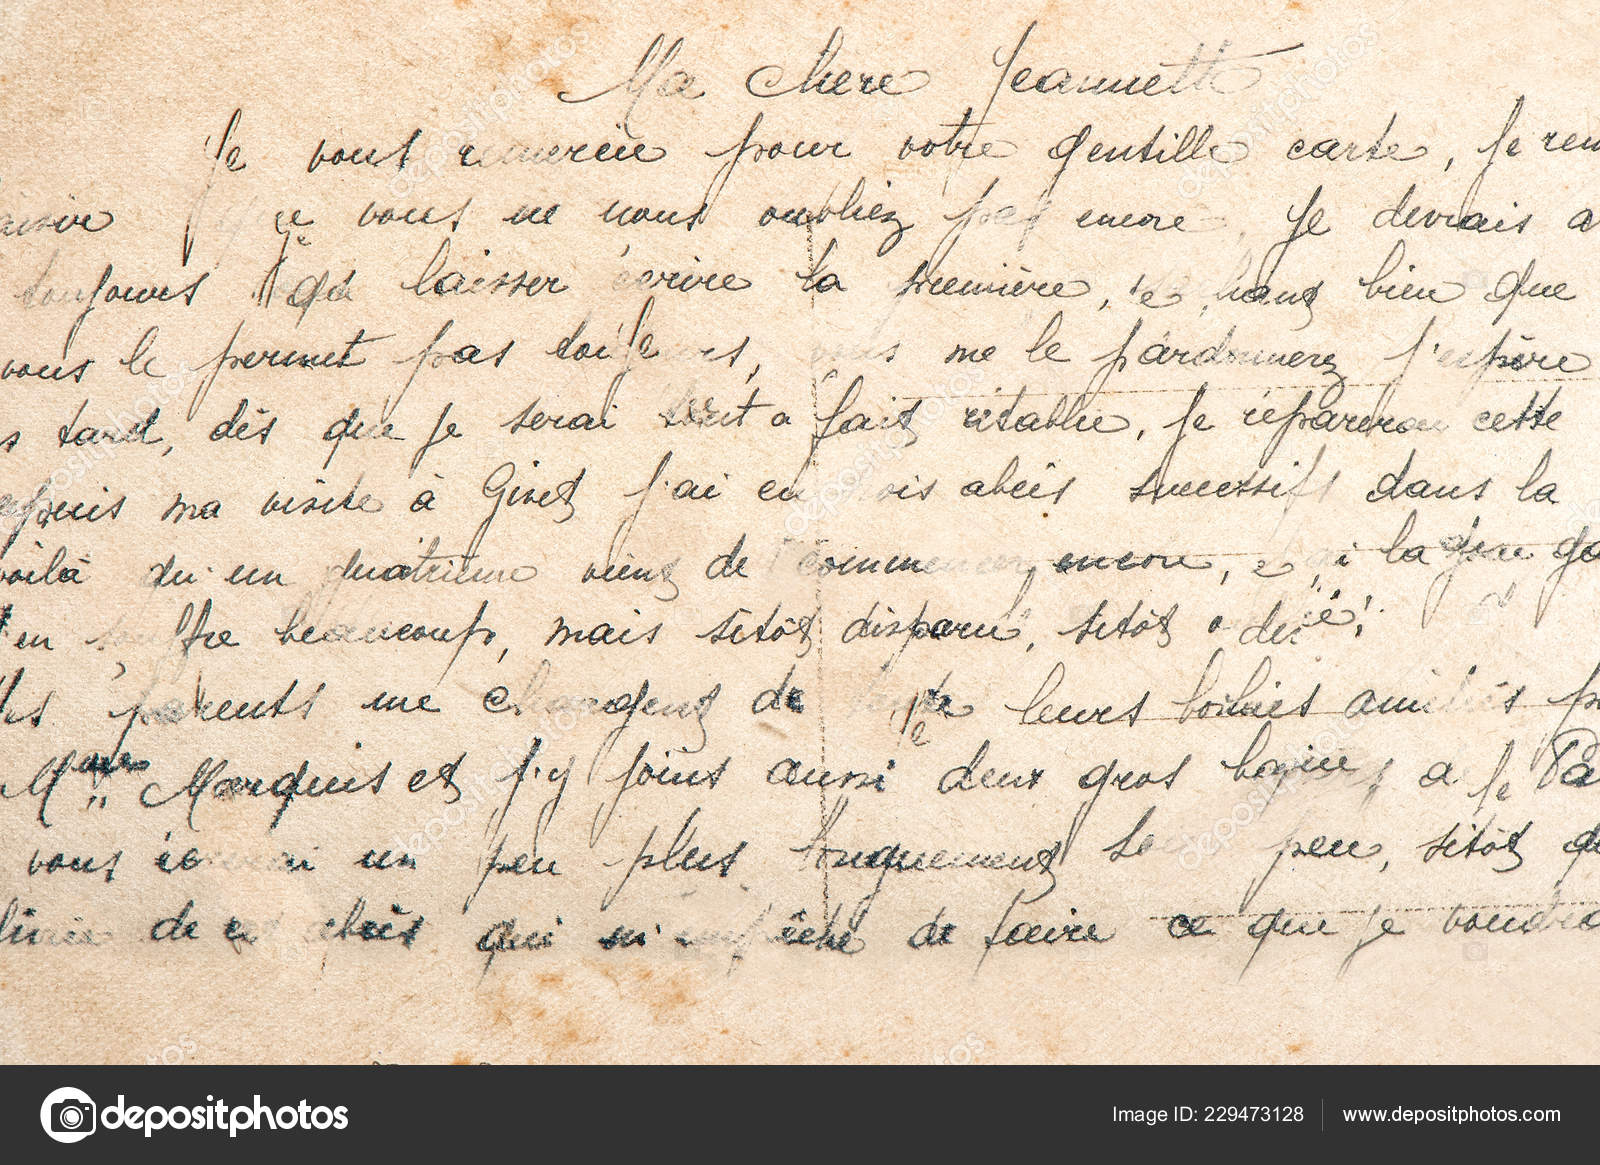 Ma chère Jeannette
Je vous remercie pour votre gentille carte, Je
que vous ne nous oubliez pas encore, Je devrais
toujours laisser écrire la première, bien que
vous le permet pas toujours, vous me le pardonnerez j'espère
tard, dès que je serai tout a fait rétablie, je réparerai cette
ma visite à Givet j'ai eu abcès successifs dans la
voilà qu'un quatrième vient de commencer encore,
en beaucoup, mais sitôt disparu, sitôt
parents me chargent de leurs amitiés
Marquis et j'y joins aussi deux gros a Je
vous un peu plus longuement peu, sitôt
de ces abcès qui m'empêche de faire ce que je
depositphotos
Image ID: 229473128
www.depositphotos.com